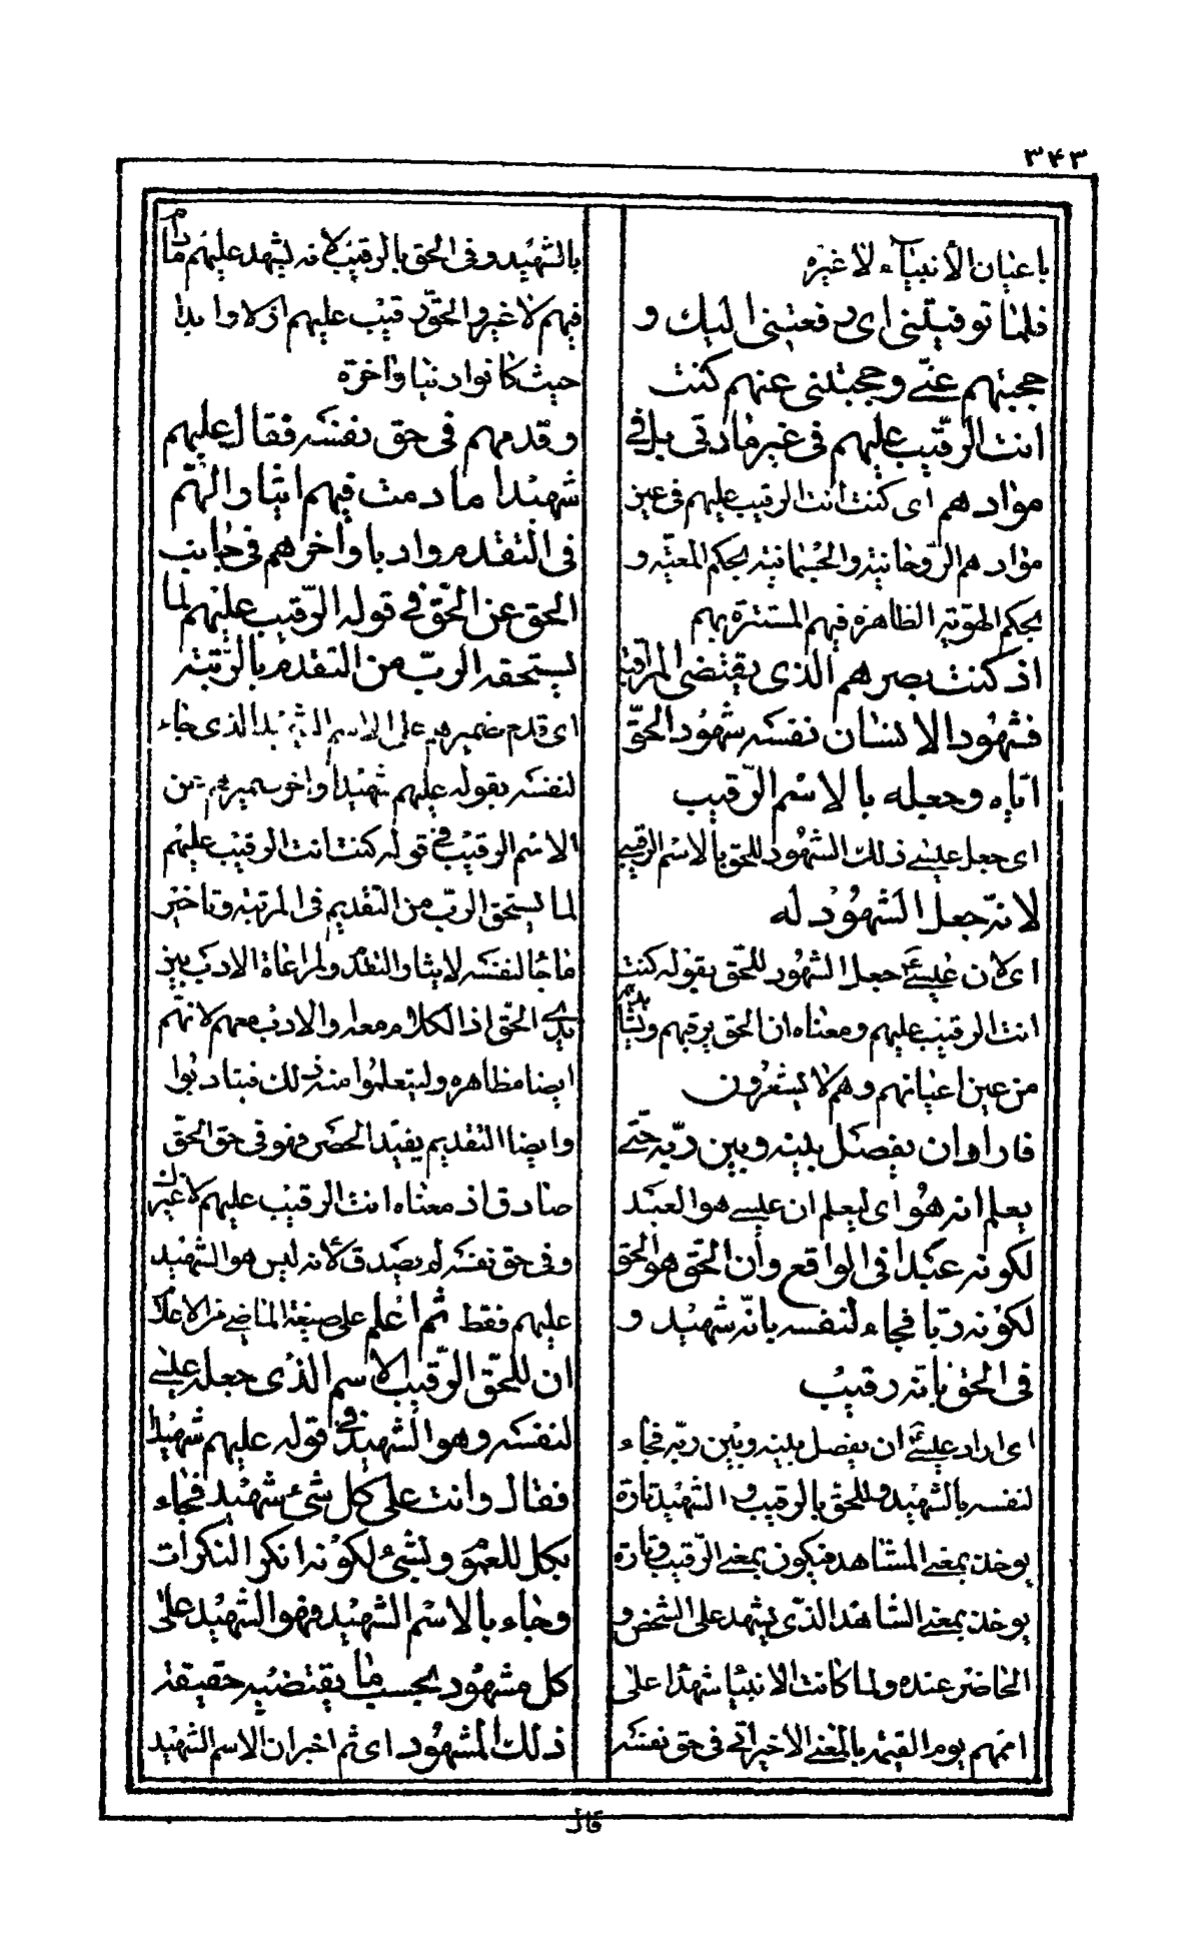 ۳۴۳
باعيان الأنبياء لا غيره
فلما توفيتنى اى رفعتنى اليك و
حجبتهم عنّى وحجبتنى عنهم كنت
انت الرقيب عليهم فى غير مادتى بل فى
موادهم اى كنت انت الرقيب عليهم فى عين
موادهم الرّوحانية والجسمانية بحكم المعيّة و
بحكم الهويّة الظاهرة فيهم المستترة بهم
اذ كنت بصرهم الذى يقتضى المراقبة
فشهود الانسان نفسه شهود الحقّ
ايّاه وجعله بالاسم الرّقيب
اى جعل عيسى ذلك الشهود للحق بالاسم الرقيب
لانّه جعل الشهود له
اى لان عيسى ع جعل الشهود للحق بقوله كنت
انت الرقيب عليهم ومعناه ان الحق يرقبهم ويشاهدهم
من عين اعيانهم وهم لا يشعرون
فاراد ان يفصل بينه وبين ربّه حتّى
يعلم انه هو اى ليعلم ان عيسى هو العبد
لكونه عبدا فى الواقع وأن الحق هو الحق
لكونه ربّا فجاء لنفسه بانّه شهيد و
فى الحق بانّه رقيب
اى اراد عيسى ع ان يفصل بينه وبين ربّه فجاء
لنفسه بالشهيد وللحق بالرقيب و الشهيد تارة
يوخذ بمعنى المشاهد فيكون بمعنى الرّقيب وتارة
يوخذ بمعنى الشاهد الذّى يشهد على الشخص و
الحاضر عنده ولما كانت الانبيا شهدا على
اممهم يوم القيمه بالمعنى الاخير اتى فى حق نفسه
بالشهيد وفى الحق بالرقيب لانه ليشهد عليهم ما دام
فيهم لا غير والحقّ رقيب عليهم ازلا وابدا
حيث كانوا دنيا واخرة
وقدمهم فى حق نفسه فقال عليهم
شهيدا ما دمت فيهم ايثارا لهم
فى التقدم وادبا واخرهم فى جانب
الحق عن الحق فى قوله الرّقيب عليهم لما
يستحقه الربّ من التقدم بالرّتبة
اى قدم ضميرهم على الاسم الشهيد الذى جاء
لنفسه بقوله عليهم شهيدا واخر ضميرهم عن
الاسم الرقيب فى قوله كنت انت الرقيب عليهم
لما يستحق الربّ من التقديم فى المرتبة وتاخير
ما جا لنفسه لايثار التقدم ولمراعاة الادب بين
يدى الحق اذ الكلام معه والادب معهم لانهّم
ايضا مظاهره وليتعلموا منه ذلك فيتادبوا
وايضا التقديم يفيد الحصر وهو فى حق الحق
صادق اذ معناه انت الرقيب عليهم لا غيرك
وفى حق نفسه لم يصدق لأنه ليس هو الشهيد
عليهم فقط ثم اعلم على صيغة الماضى من الاعلام
ان للحق الرّقيب الاسم الذى جعله عيسى
لنفسه وهو الشهيد فى قوله عليهم شهيدا
فقال وانت على كل شئ شهيد فجاء
بكل للعموم وبشئ لكونه انكر النكرات
وجاء بالاسم الشهيد فهو الشهيد على
كل مشهود بحسب ما يقتضيه حقيقة
ذلك المشهود اى ثم اخبر ان الاسم الشهيد
قال